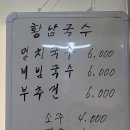 황남국수
멸치국수 6.000
비빔국수 6.000
부추전 6.000
소주 4.000